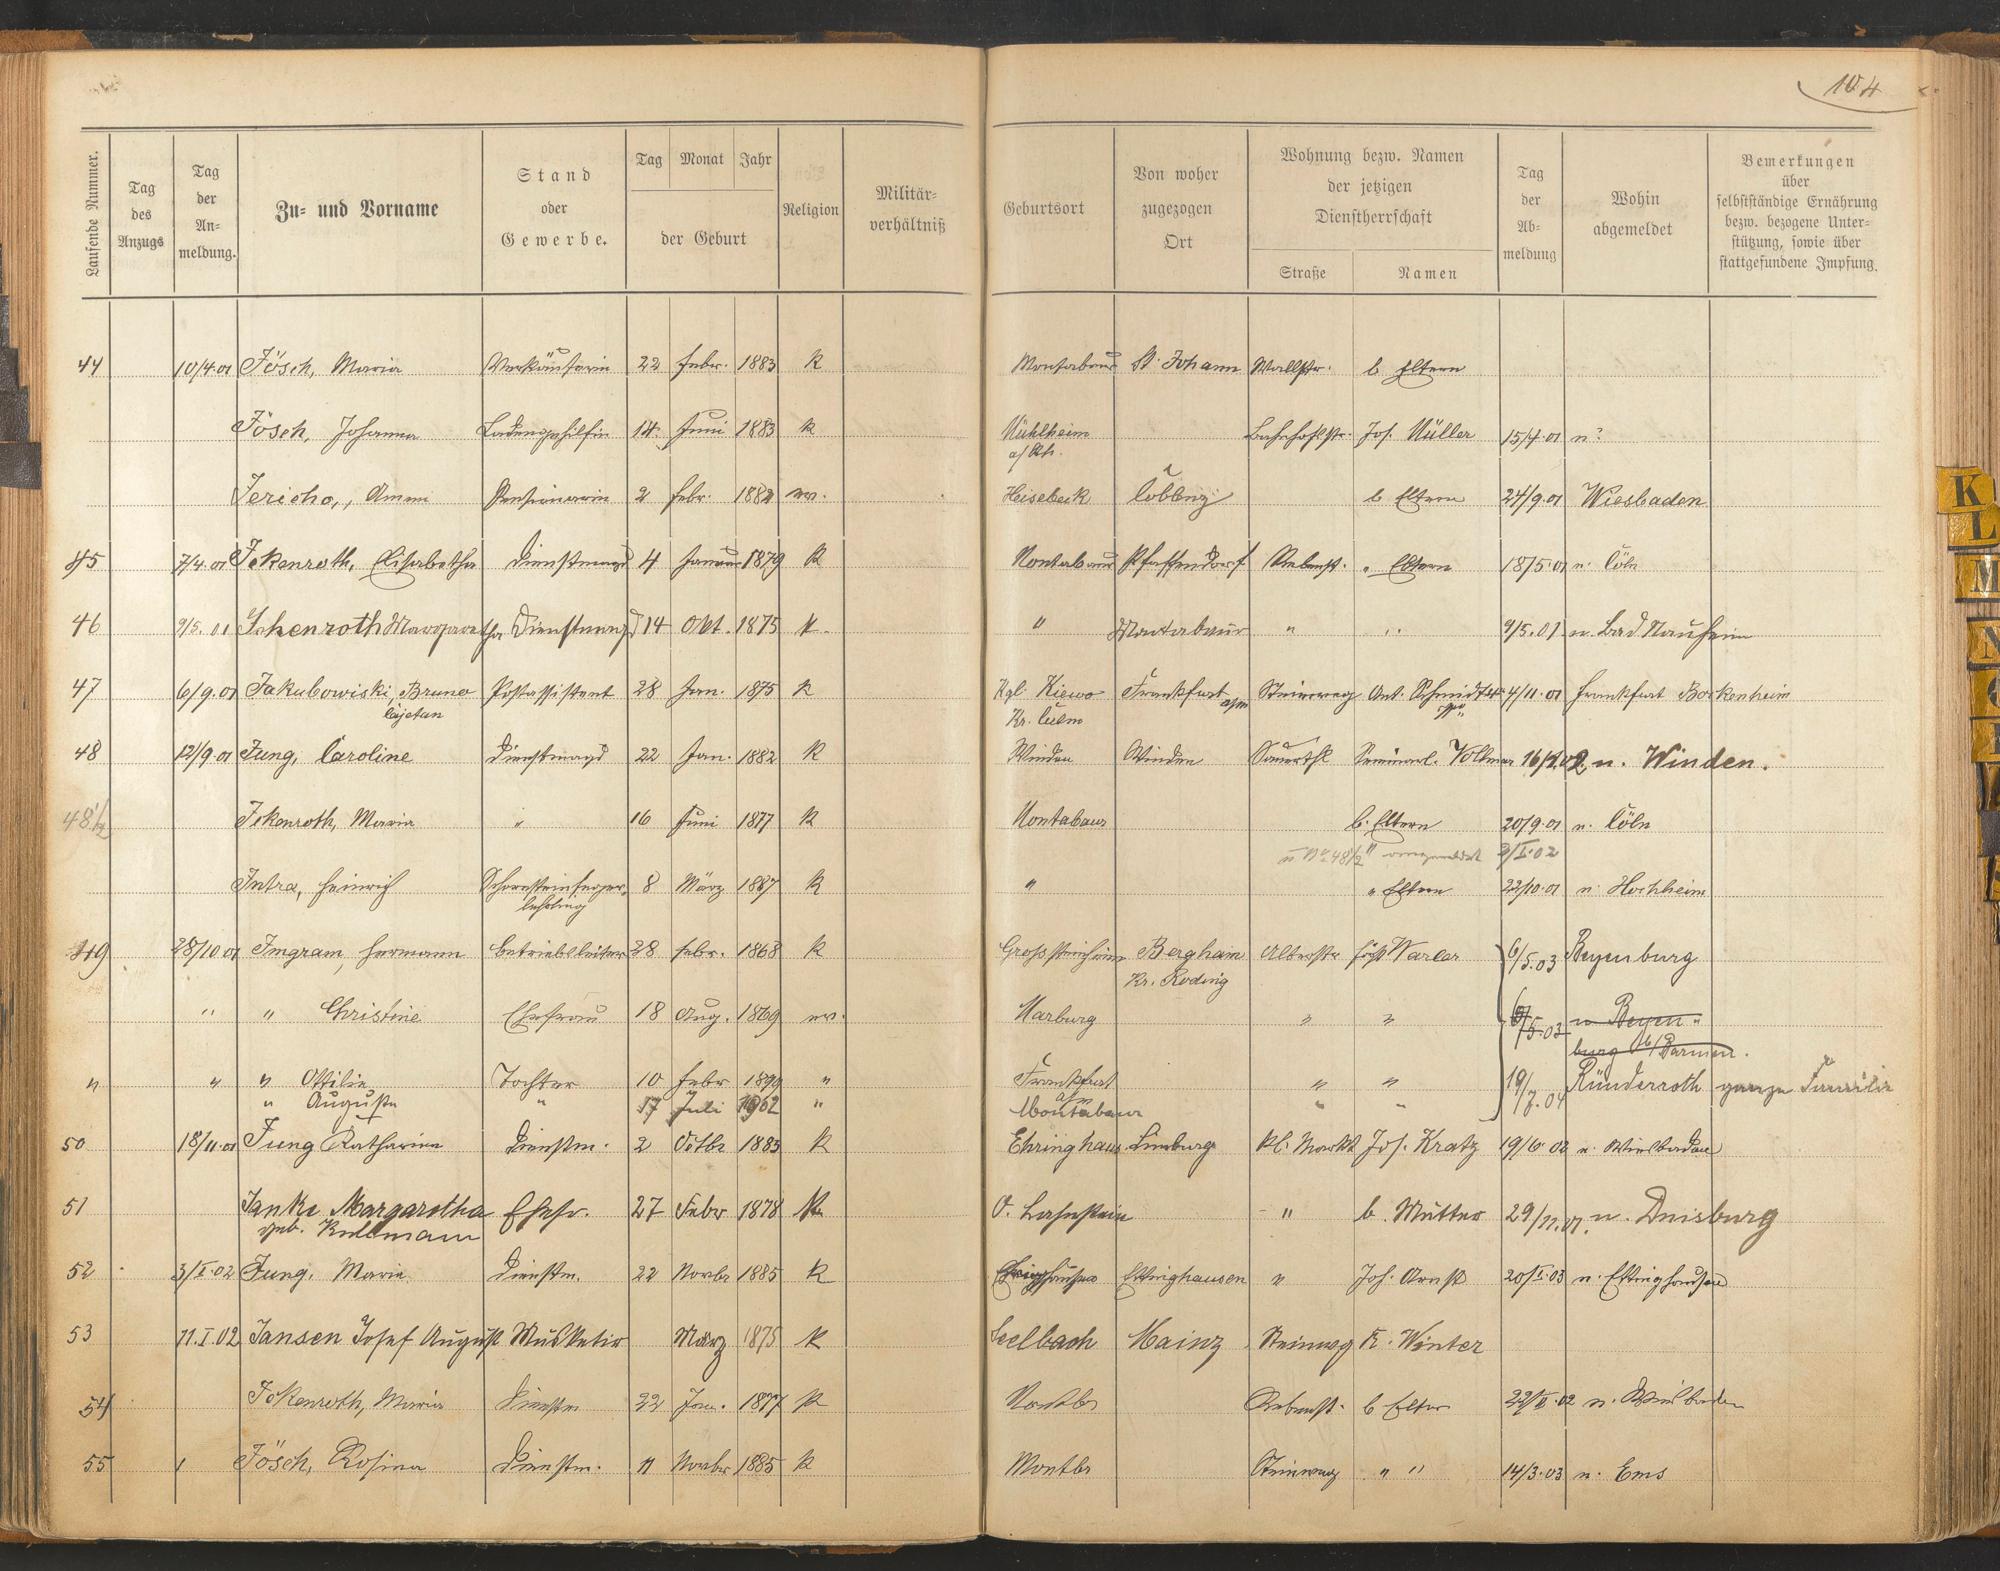 104
Laufende Nummer. Tag des Anzugs Tag der An- meldung. Zu- und Vorname Stand oder Gewerbe. Tag Monat Jahr der Geburt Religion Militär- verhältniß Geburtsort Von woher zugezogen Ort Wohnung bezw. Namen der jetzigen Dienstherrschaft Straße Namen Tag der Ab- meldung Wohin abgemeldet Bemerkungen über selbstständige Ernährung bezw. bezogene Unter- stützung, sowie über stattgefundene Impfung.
44 10/4.01 Jösch, Maria Verkäuferin 22 Febr. 1883 K Montabaur St. Johann Wallstr. b Eltern
Jösch, Johanna Ladengehilfin 14. Juni 1883 K Mühlheim Bahnhofstr. Jos. Müller 15/4.01 n?
a/Rh.
Jericho, 2 Febr. 1882 ev. Heisebeck Coblenz b Eltern 24/9.01 Wiesbaden
45 7/4.01 Jckenroth, Elisabetha Dienstmagd 4 Januar 1879 K Montabaur Pfaffendorf Rebenst. " Eltern 18/5.01 n. Cöln
46 9/5.01 Ickenroth Margaretha Dienstmagd 14 Okt. 1875 K. " Montabaur " " 9/5.01 n. Bad Nauheim
47 6/9.01 Jakubowiski, Bruno Postassistent 28 Jan. 1875 K Kgl. Kiewo Frankfurt a/m Steinweg Ant. Schmidt 4/11.01 Frankfurt Bockenheim
Cajetan Kr. Culm
48 12/9.01 Jung, Caroline Dienstmagd 22 Jan. 1882 K Winden Winden Sauerthl Seminarl. Vollmer 16/2.02 n. Winden.
48 1/2 Jckenroth, Maria " 16 Juni 1877 K Montabaur b. Eltern 20/9.01 n. Cöln
3/I.02
Intra, Heinrich Schornsteinfeger- 8 März 1887 K " " Eltern 22/10.01 n. Hochheim
lehrling
49 28/10 01 Imgram, Hermann Betriebsleiter 28 Febr. 1868 K Grosssteinheim Bergham Alberstr Varler 6/5.03 Beyenburg
Kr. Roding
" " Christine Ehefrau 18 Aug. 1869 ev. Marburg " " 6/5.03 n Beyen-
burg b/Barmen.
" " " Ottilie Tochter 10 Febr 1899 " Frankfurt a/m " " 19/7.04 Ründerroth ganze Familie
" Auguste " 17 Juli 1902 " Montabaur " "
50 18/11.01 Jung Katharina Dienstm. 2 Octbr 1883 K Ehringhaus. Limburg Kl. Markt Jos. Kratz 19/6 02 n. Wiesbaden
51 Janke Margaretha Ehefr. 27 Febr 1878 K O. Lahnstein " b. Mutter 29/11.01. n. Duisburg
geb. Kullmann
52 3/I.02 Jung, Maria Dienstm. 22 Novbr 1885 K Ettinghausen " Joh. Arnst 20/I.03 n. Ettinghausen
53 11.I.02 Jansen Josef August Musketir März 1875 K Seelbach Mainz Steinwg K. Winter
54 Jckenroth, Maria Dienstm 22 Jan. 1877 K Montbr Rebenst. b Eltern 22/II.02 n. Wiesbaden
55 Jösch, Rosina Dienstm. 11 Novbr 1885 K Montbr Steinweg " " 14/3.03 n. Ems
K
L
M
N
O